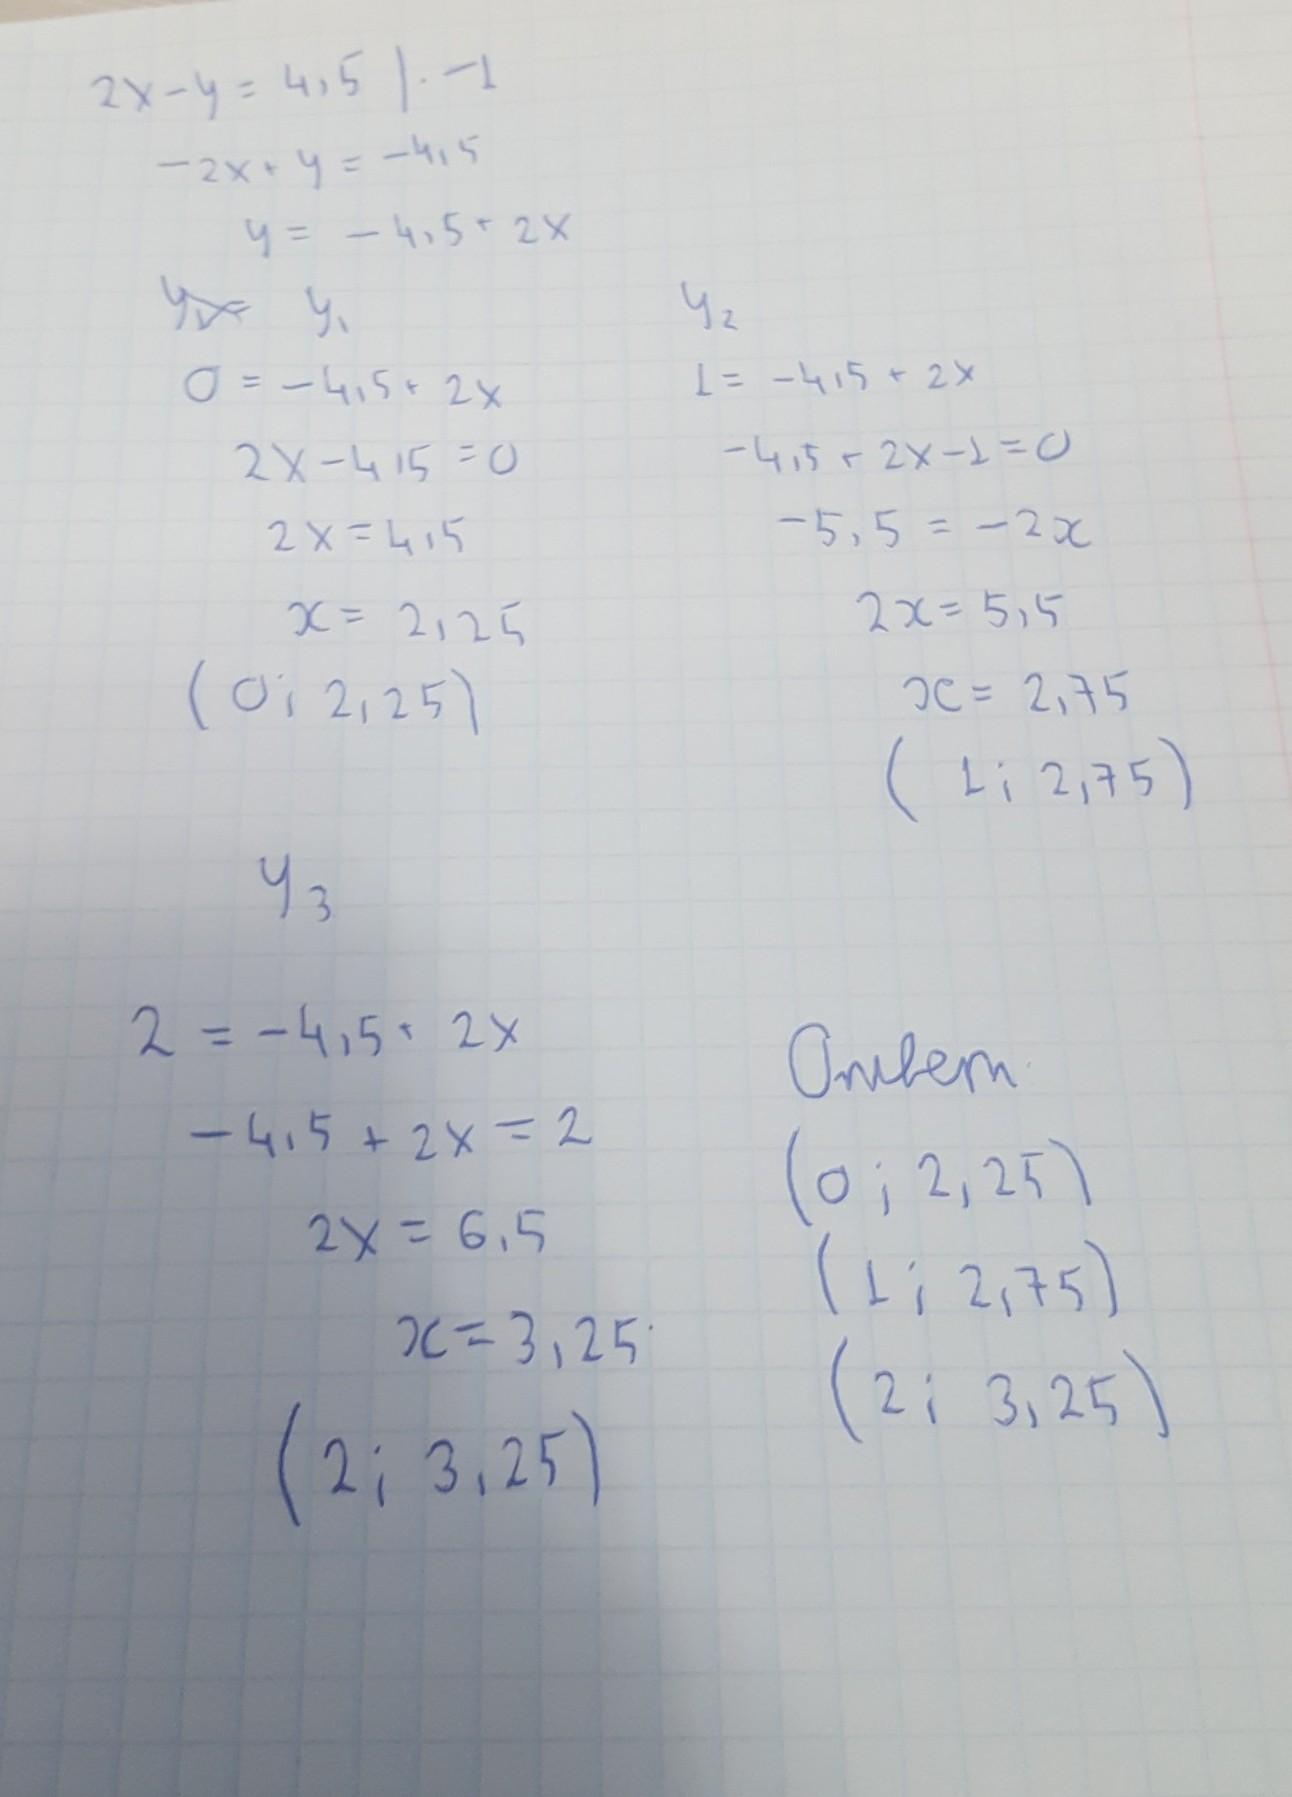 2x-y=4,5 |·-1
-2x+y=-4,5
y=-4,5+2x
y₁
0=-4,5+2x
2x-4,5=0
2x=4,5
x=2,25
(0; 2,25)
y₂
1=-4,5+2x
-4,5+2x-1=0
-5,5=-2x
2x=5,5
x=2,75
(1; 2,75)
y₃
2=-4,5+2x
-4,5+2x=2
2x=6,5
x=3,25
(2; 3,25)
Ответ:
(0; 2,25)
(1; 2,75)
(2; 3,25)